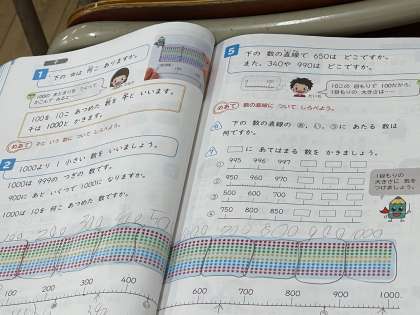 1
下の 〇は 何こ ありますか。
100を 10こ あつめた 数を 千と いいます。
千は 1000と かきます。
めあて 千と いう 数に ついて しらべよう。
2
1000より 1 小さい 数を いいましょう。
1000は 999の つぎの 数です。
900に あと いくつで 1000に なりますか。
1000は 10を 何こ あつめた 数ですか。
100 200 300 400
5
下の 数の直線で 650は どこですか。
また、340や 990は どこですか。
10この 目もりで 100だから、
1目もりの 大きさは…
めあて 数の直線に ついて しらべよう。
6
下の 数の直線の あ、い、うに あたる 数は
何ですか。
7
に あてはまる 数を かきましょう。
① 995 996 997
② 950 960 970
③ 500 600 700
④ 750 800 850
1目もりの
大きさに 気を
つけましょう。
700 800 900 1000